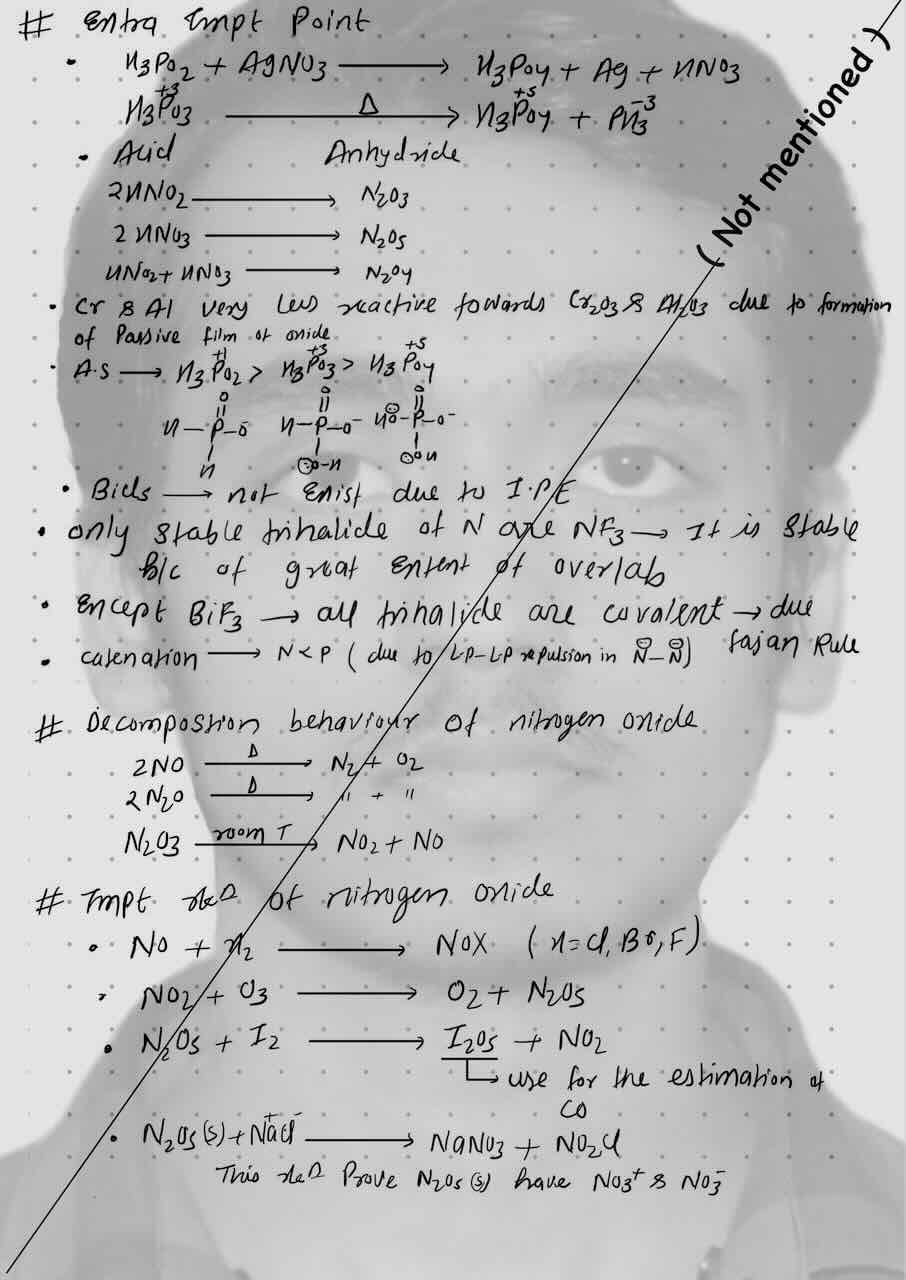 # Extra Impt Point
• H3PO2 + AgNO3 ⟶ H3PO4 + Ag + HNO3
+3 +5 -3
H3PO3 ⟶ Δ H3PO4 + PH3
• Acid Anhydride
2HNO2 ⟶ N2O3
2HNO3 ⟶ N2O5
HNO2 + HNO3 ⟶ N2O4
• Cr & Al very less reactive towards Cr2O3 & Al2O3 due to formation
of Passive film of oxide.
+1 +3 +5
• A.S ⟶ H3PO2 > H3PO3 > H3PO4
O O O
H–P–O- H–P–O- HO–P–O-
H O–H OH
• BiCl5 ⟶ not Exist due to I.P.E
• only stable trihalide of N are NF3 ⟶ It is stable
b/c of great Extent of overlab
• Except BiF3 ⟶ all trihalide are covalent → due
fajan Rule
• catenation ⟶ N<P ( due to LP–LP repulsion in N–N)
# Decompostion behaviour of nitrogen oxide
2NO ⟶ Δ N2 + O2
2N2O ⟶ Δ " + "
N2O3 ⟶ room T NO2 + NO
# Impt rexn of nitrogen oxide
• NO + X2 ⟶ NOX ( X=Cl, Br, F)
• NO2 + O3 ⟶ O2 + N2O5
• N2O5 + I2 ⟶ I2O5 + NO2
↳ use for the estimation of
CO
• N2O5(s) + Na+Cl- ⟶ NaNO3 + NO2Cl
This rexn Prove N2O5(s) have NO3+ & NO3-
( Not mentioned )